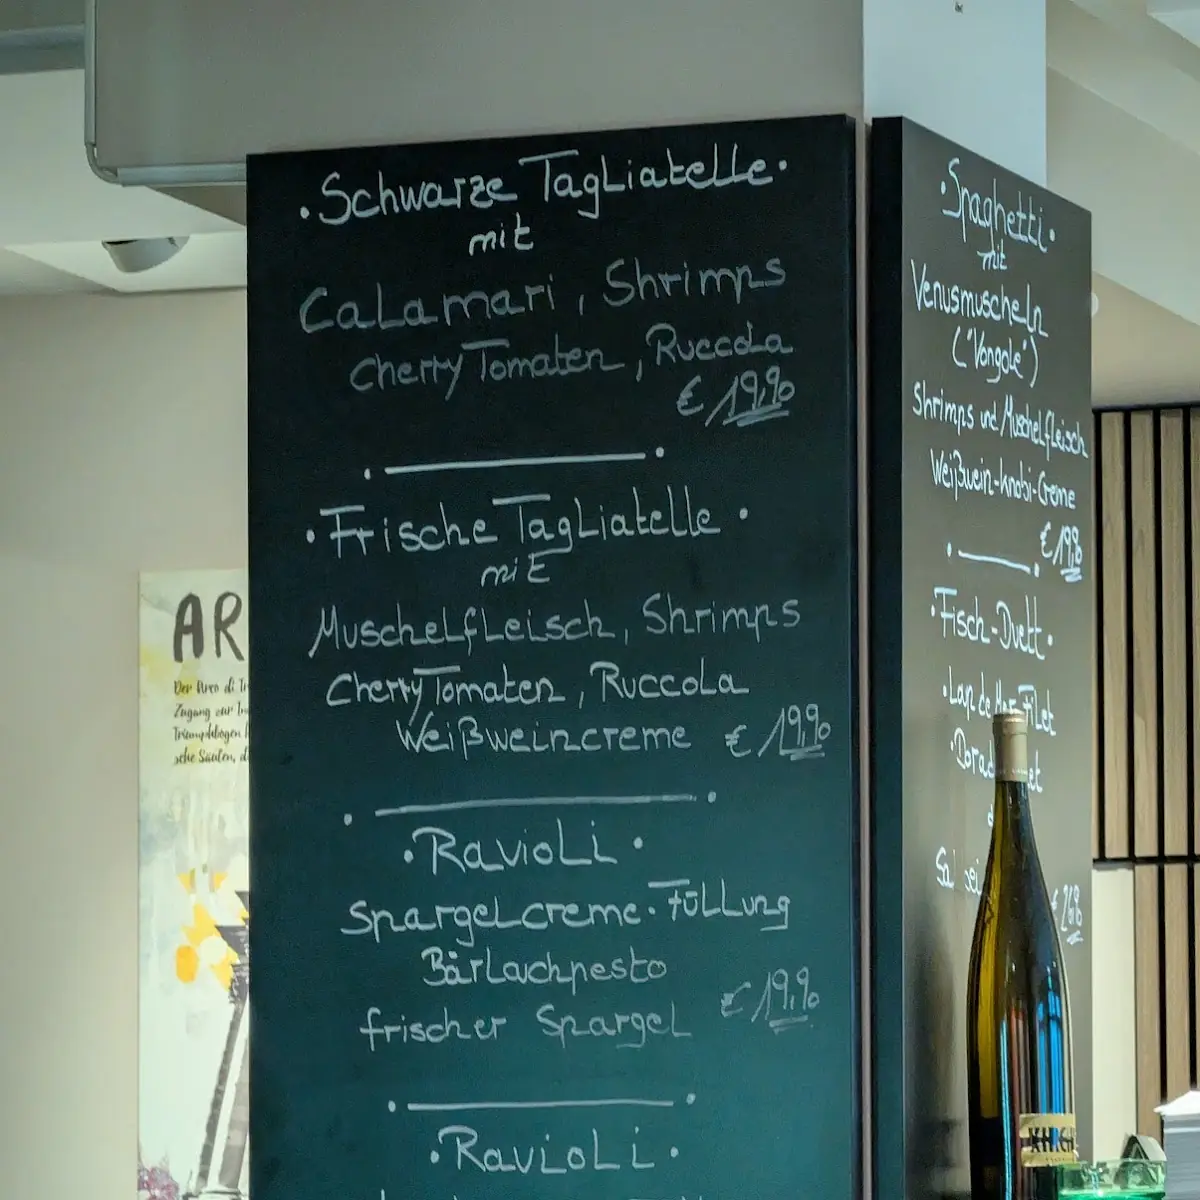 • Schwarze Tagliatelle •
mit
Calamari, Shrimps
Cherry Tomaten, Ruccola
€ 19,90
• Frische Tagliatelle •
mit
Muschelfleisch, Shrimps
Cherry Tomaten, Ruccola
Weißweincreme € 19,90
• Ravioli •
Spargelcreme-Füllung
Bärlauchpesto
frischer Spargel € 19,90
• Ravioli •
• Spaghetti •
mit
Venusmuscheln
("Vongole")
Shrimps und Muschelfleisch
Weißwein-knobi-Creme
€ 19,80
• Fisch-Duett •
Filet
AR
Der Arco di
Zugang zur
Triumphbogen
sche Säulen,